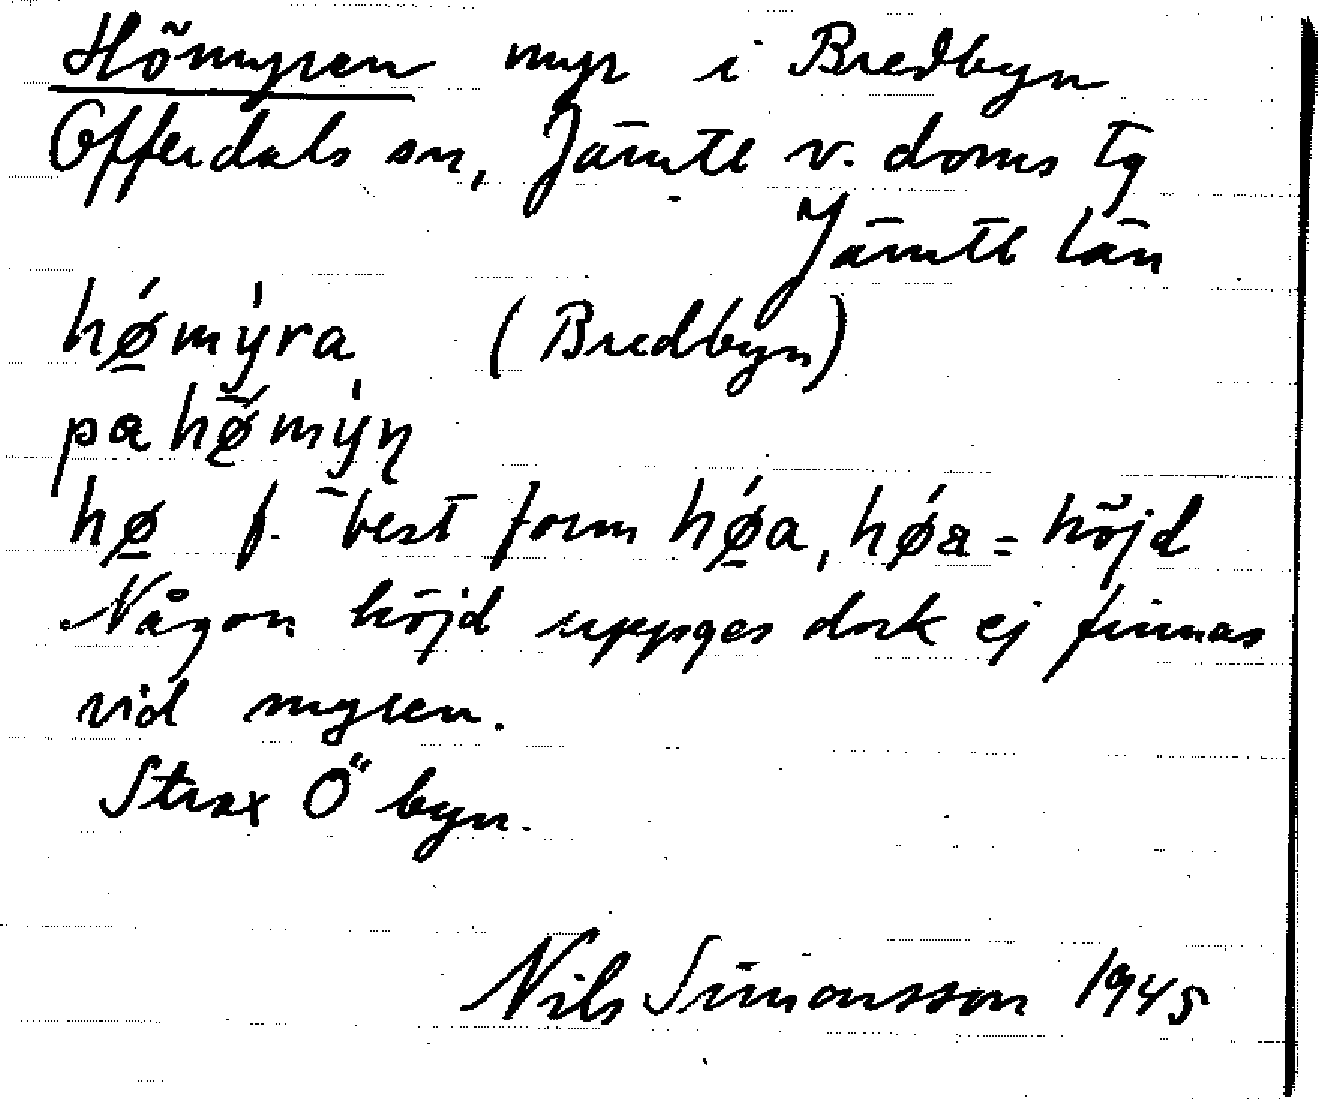 Hömyren myr i Bredbyn
Offerdals sn, Jämtl v. doms tg
Jämtl län
hǿ̱mỳra (Bredbyn)
pa hø̱̄́mỳɳ
hø̱ f. best form hǿ̱a, hǿa = höjd
Någon höjd uppges dock ej finnas
vid myren.
Strax Ö byn.
Nils Simonsson 1945